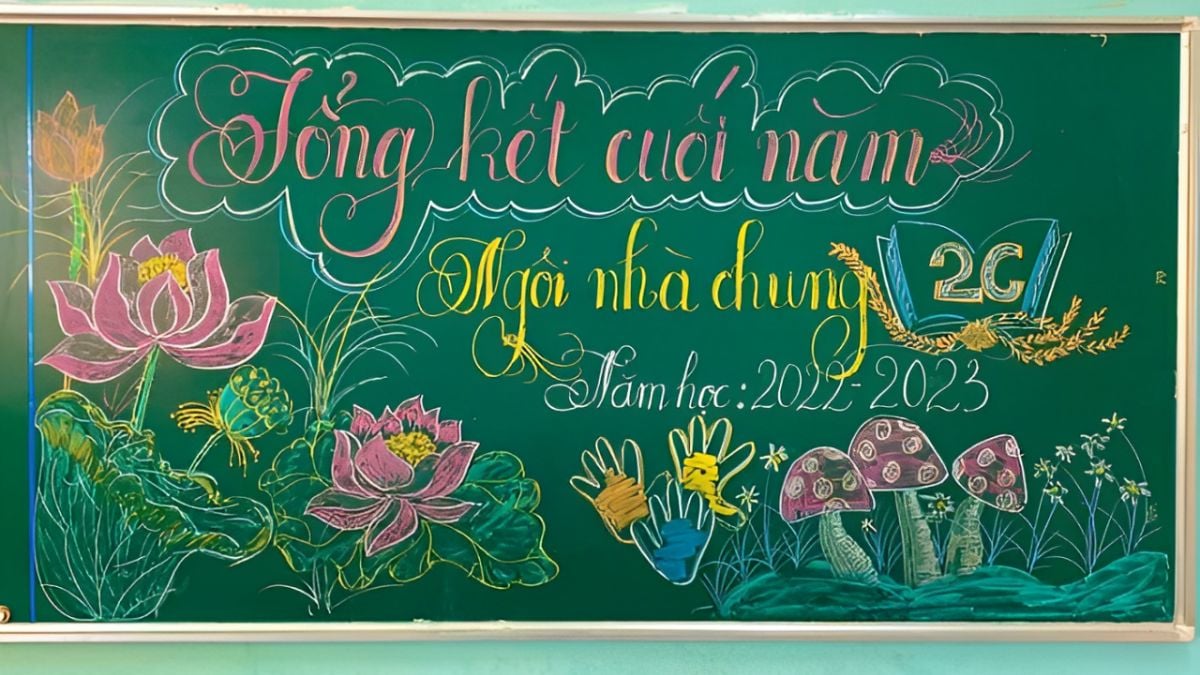 Tổng kết cuối năm
Ngôi nhà chung
2C
Năm học: 2022-2023